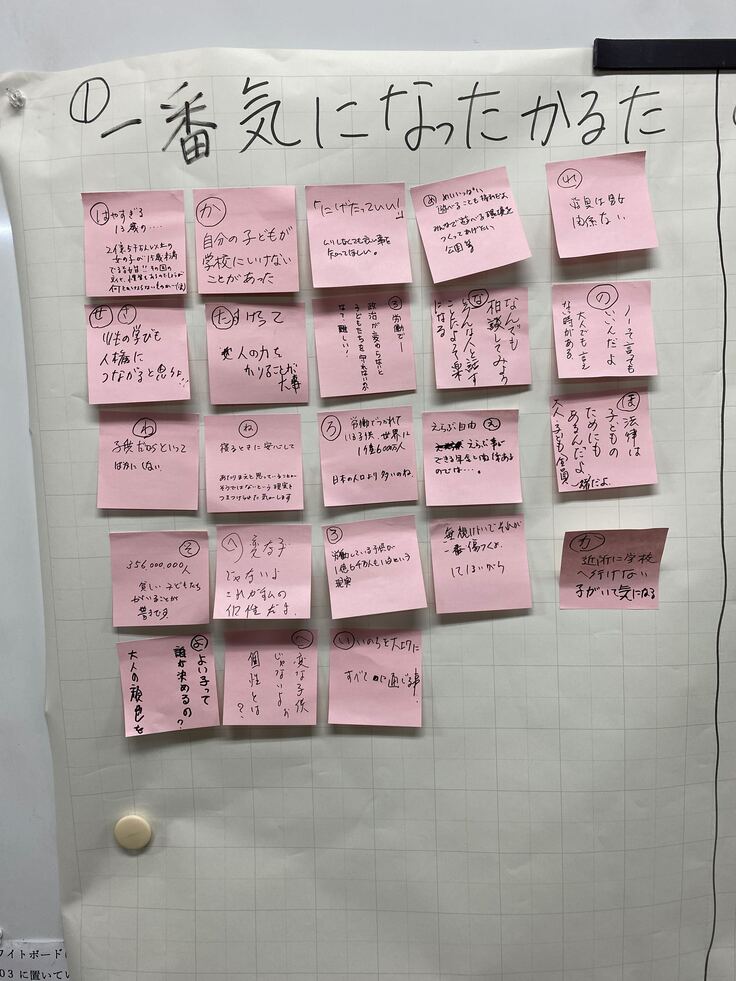 ① 一番気になったかるた
は やすぎる
13歳の‥‥
2億5千万人以上の
女の子が15歳未満
か
自分の子どもが
学校にいけない
ことがあった
「にげたっていい!」
ムリしなくても良い事を
知ってほしい。
め めいいっぱい
遊べることも権利だと
みんなで遊べる環境を
つくってあげたい
公園等
れ
道具は男女
関係ない
せ さ
性の学びも
人権に
つながると思うよ!!
た すけって
人の力を
かりることが
大事
ろ 労働で―
政治が変わらないと
子どもたちを守れないか
な? 難しい!
な なんでも
相談してみよう
どんな人と話す
ことだよそ楽
になる
の ノーそ言っても
いいんだよ
大人でも言え
ない時がある
わ
子供だからといって
ばかにしない
ね
寝るときに安心して
あたりまえと思っている
そうではないという現実を
つきつけられた気がします
ろ 労働でつかれて
いる子供、世界に
1億6000万人
日本の人口より多いのね。
えらぶ自由 え
えらぶ事が
できる年金と内容ある
のでは‥‥。
ほ 法律は
子どもの
ためにも
あるんだよ
大人・子ども全員
一緒だよ。
そ
356,000,000人
貧しい子どもたち
がいることが
驚きです
へ 変な子
じゃないよ
これが私の
個性だよ
ろ
労働している子供が
1億6千万人もいるという
現実
一番傷つくよ
か
近所に学校
へ行けない
子がいて気になる
よ よい子って
誰が決めるの?
大人の顔色を
へ 変な子供
じゃないよ
個性とは?
い いのちを大切に
すべてに通じる事。
ワイトボード
03に置いてい